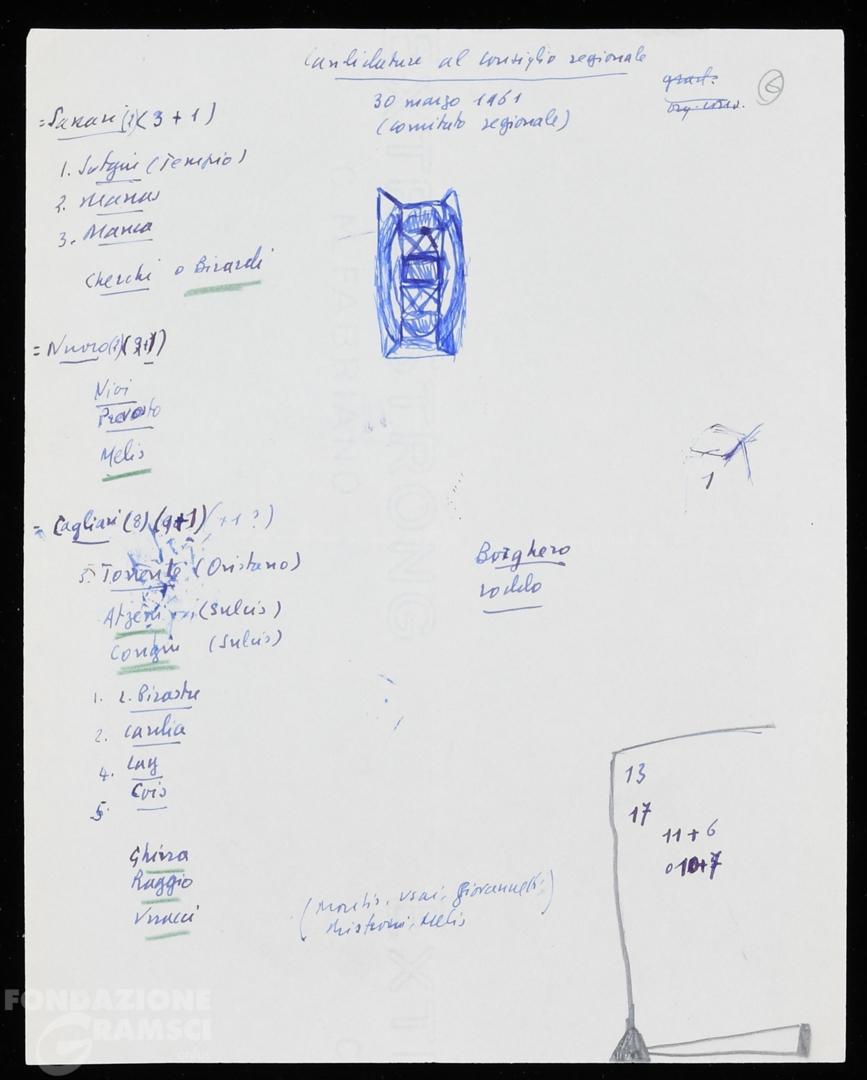 Candidature al consiglio regionale
30 marzo 1961
(comitato regionale)
6
= Sassari (3 + 1)
1. Sotgiu (Tempio)
2. Marras
3. Manca
Cherchi o Birardi
= Nuoro
Nioi
Prevosto
Melis
= Cagliari (8) (9+1) (+1?)
3. Torrente (Oristano)
Atzeni (Sulcis)
Congiu (Sulcis)
1. L. Pirastu
2. Cardia
4. Lay
5. Cois
Ghirra
Raggio
Usai
Borghero
Loddo
(Montis, Usai, Giovannetti,
Mistroni, Melis)
1
13
17
11 + 6
o 10+7
C. M. FABRIANO
FONDAZIONE
GRAMSCI
onlus